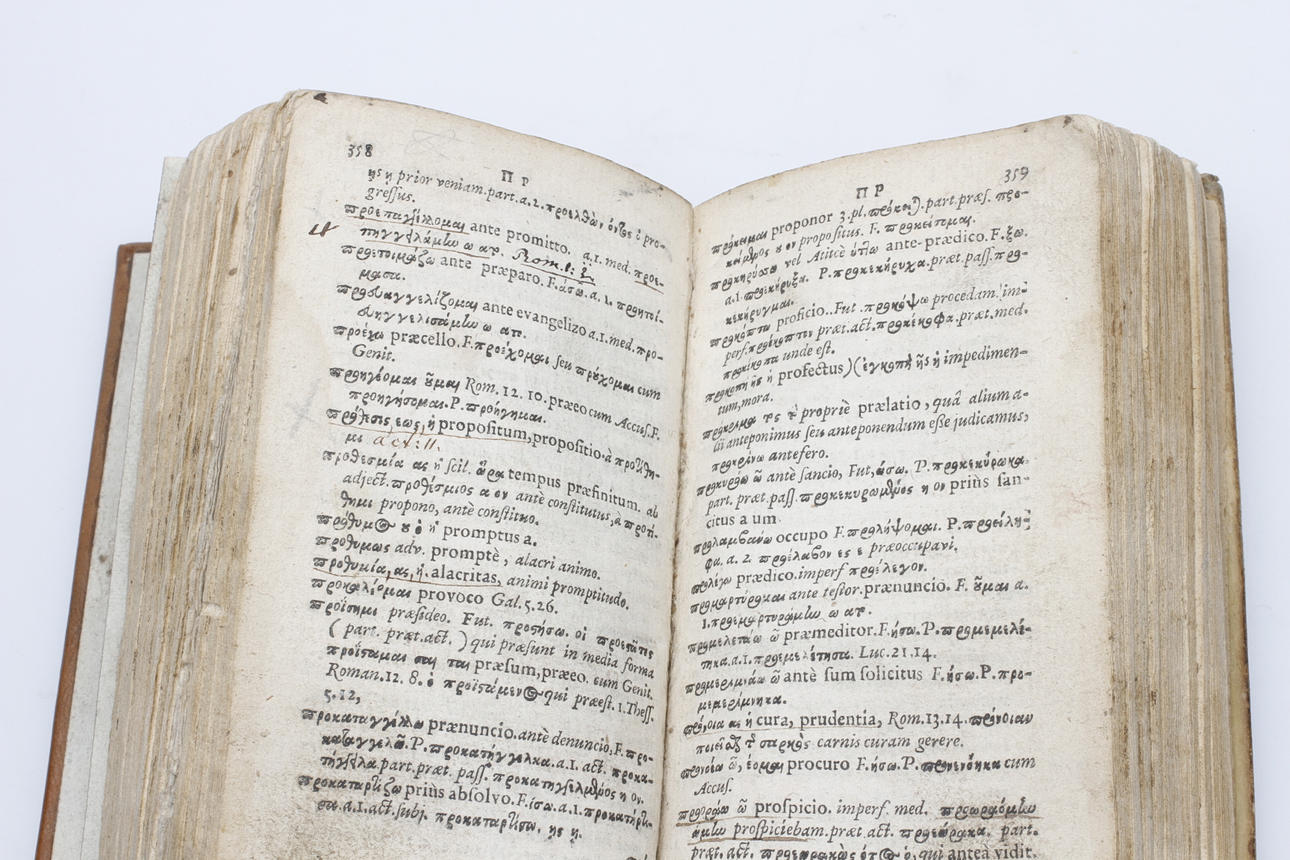 358
Π Ρ
ῃς ῃ prior veniam. part. a. 2. προελθὼν όντος ὁ pro-
gressus.
προεπαγγέλλομαι ante promitto. a. 1. med. προε-
πηγγειλάμην ω ατο. Rom. 1: 2.
προετοιμάζω ante præparo. F. άσω. a. 1. προητοί-
μασα.
προευαγγελίζομαι ante evangelizo a. 1. med. προ-
ευηγγελισάμην ω ατο.
προέχω præcello. F. προέξομαι seu προέχομαι cum
Genit.
προηγέομαι οῦμαι Rom. 12. 10. præeo cum Accus. F.
προηγήσομαι. P. προήγημαι.
πρόθεσις εως, ἡ propositum, propositio. à προτίθη-
μι act: 11.
προθεσμία ας ἡ scil. ὥρα tempus præfinitum. ab
adject. προθέσμιος α ον antè constitutus, à προτί-
θημι propono, antè constituo.
πρόθυμος ου ὁ ἡ promptus a.
προθυμως adv. promptè, alacri animo.
προθυμία, ας, ἡ. alacritas, animi promptitudo.
προκαλέομαι provoco Gal. 5. 26.
προΐστημι præsideo. Fut. προστήσω. οἱ προεστῶτες
( part. præt. act. ) qui præsunt in media forma
προΐσταμαι σαι ται præsum, præeo. cum Genit.
Roman. 12. 8. ὁ προϊστάμενος qui præest. 1. Thess.
5. 12,
προκαταγγέλλω prænuncio. antè denuncio. F. προ-
καταγγελῶ. P. προκατήγγελκα. a. 1. act. προκα-
τήγγειλα part. præt. pass. προκατηγγελμένος η ον.
προκαταρτίζω priùs absolvo. F. ίσω. a. 1. προκατήρτι-
σα. a. 1. act. subj. προκαταρτίσω. ῃς ῃ.
359
Π Ρ
πρόκειμαι proponor 3. pl. πρόκεινται. part. præs. προ-
κείμενος η ον propositus. F. προκείσομαι.
προκηρύσσω vel Atticè ύττω ante-prædico. F. ξω.
a. 1. προεκήρυξα. P. προκεκήρυχα. præt. pass. προ-
κεκήρυγμαι.
προκόπτω proficio.. Fut προκόψω procedam. im-
perf. προέκοπτον præt. act. προκέκοφα. præt. med.
προκέκοπα unde est.
προκοπὴ ῆς ἡ profectus) ( ἐγκοπὴ ῆς ἡ impedimen-
tum, mora.
πρόκριμα τος τὸ propriè prælatio, quâ alium a-
lii anteponimus seu anteponendum esse judicamus,
προκρίνω antefero.
προκυρόω ῶ antè sancio, Fut, ώσω. P. προκεκύρωκα.
part. præt. pass. προκεκυρωμένος η ον priùs san-
citus a um.
προλαμβάνω occupo F. προλήψομαι. P. προείλη-
φα. a. 2. προέλαβον ες ε præoccupavi.
προλέγω prædico. imperf προέλεγον.
προμαρτύρομαι ante testor. prænuncio. F. οῦμαι a.
1. προεμαρτυράμην ω ατο.
προμελετάω ῶ præmeditor. F. ήσω. P. προμεμελέ-
τηκα. a. 1. προεμελέτησα. Luc. 21. 14.
προμεριμνάω ῶ antè sum solicitus F. ήσω. P. προ-
μεμερίμνηκα.
πρόνοια ας ἡ cura, prudentia, Rom. 13. 14. πρόνοιαν
ποιεῖσθαι τῆς σαρκὸς carnis curam gerere.
προνοέω ῶ, έομαι procuro F. ήσω. P. προνενόηκα cum
Accus.
προοράω ῶ prospicio. imperf. med. προωραόμην
ώμην prospiciebam. præt. act. προεώρακα. part.
præt. act. προεωρακὼς ότος ὁ, qui anteà vidit.